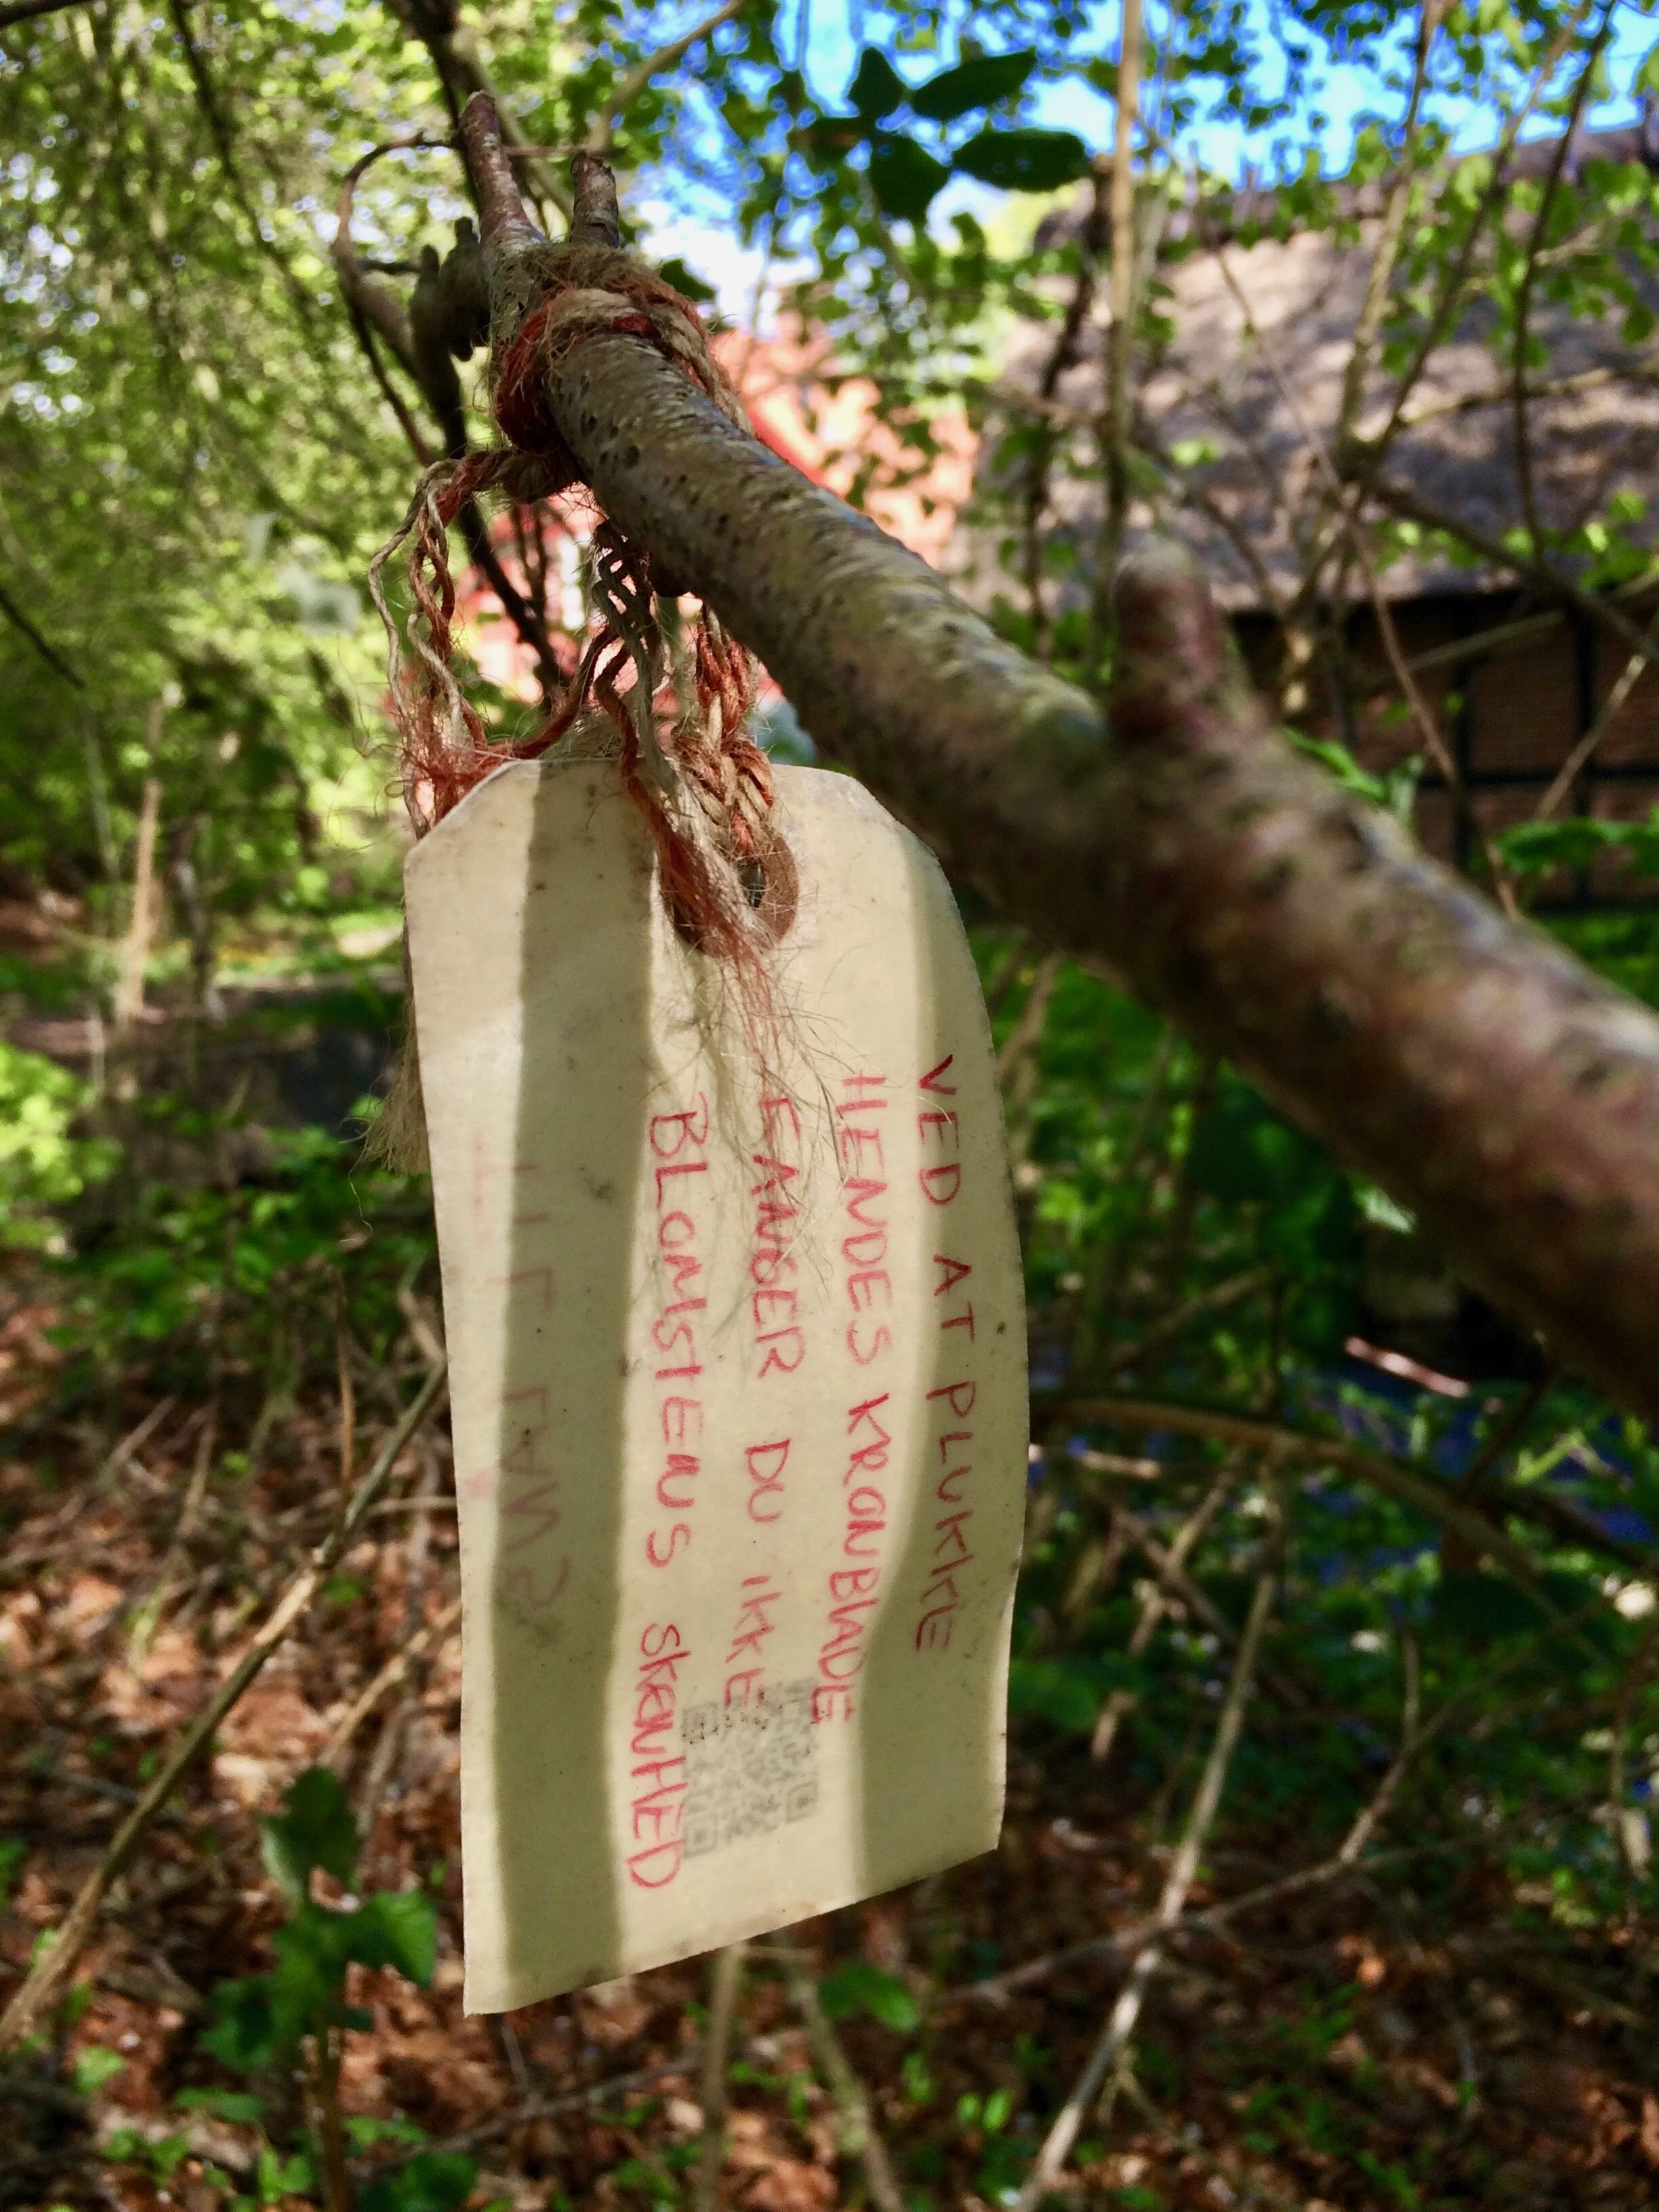 VED AT PLUKKE
HENDES KRONBLADE
FANGER DU IKKE
BLOMSTENS SKØNHED